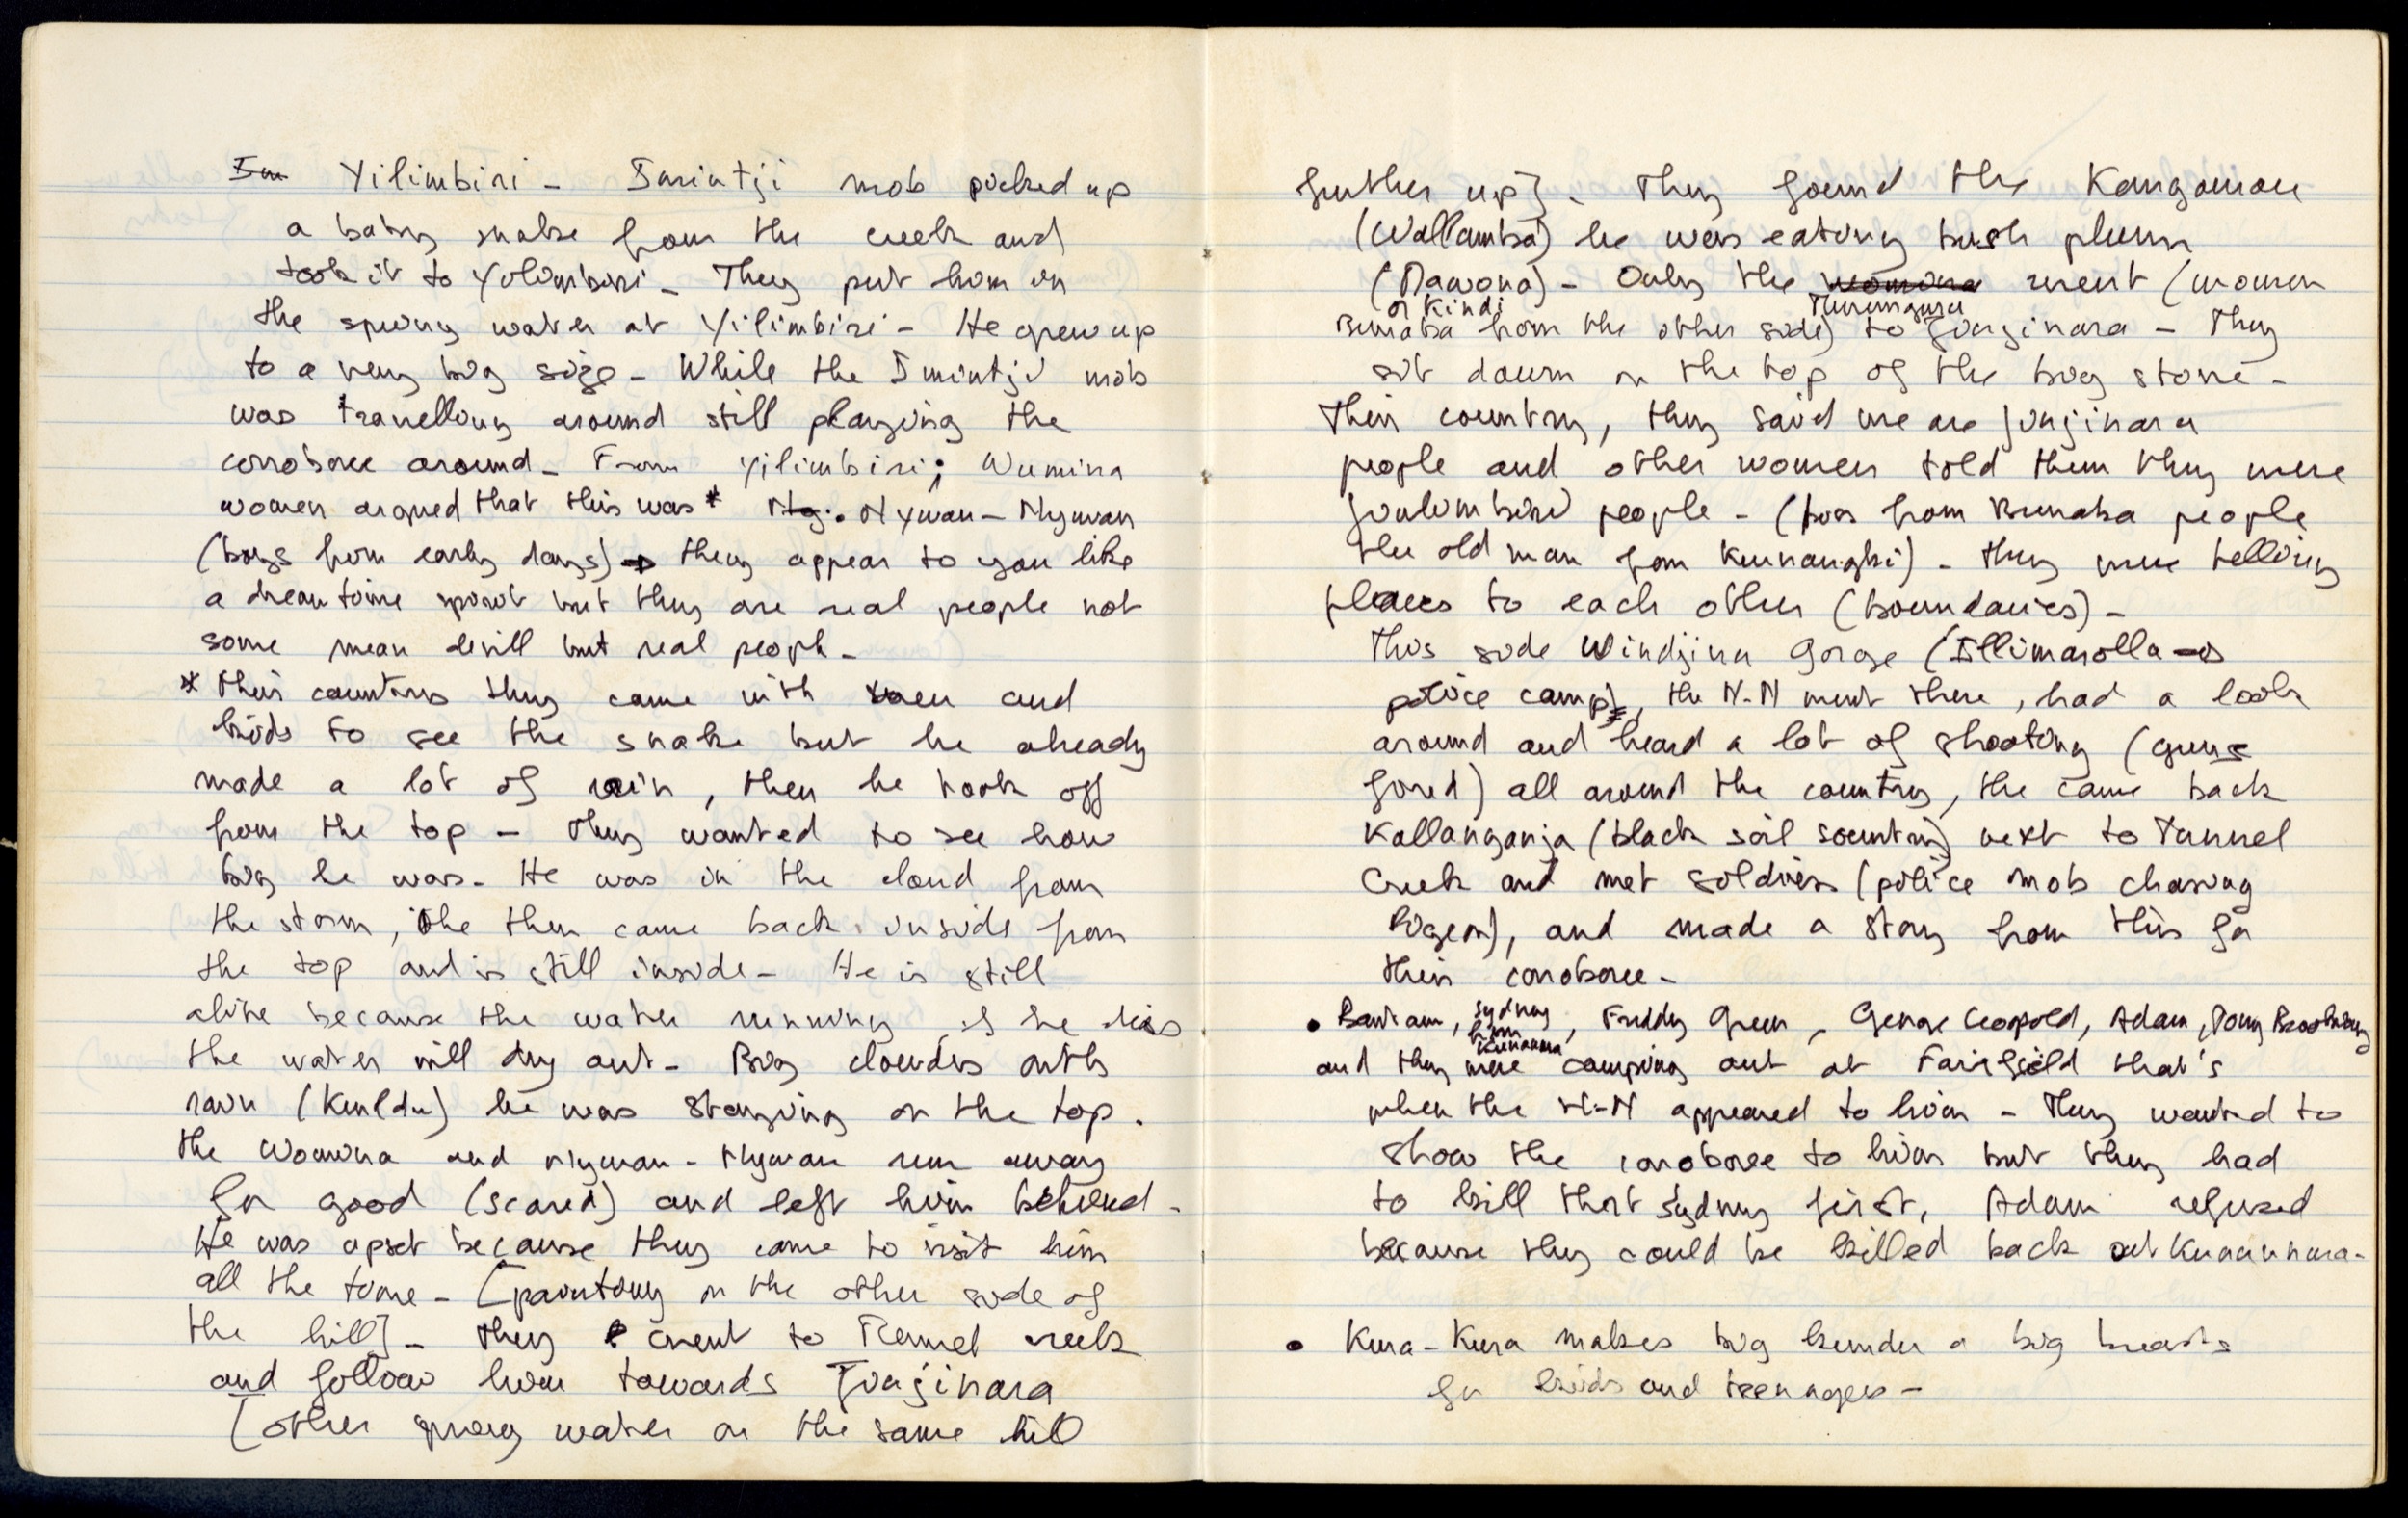 Im Yilimbiri - Imintji mob picked up
a baby snake from the creek and
took it to Yilimbiri - They put him in
the spring water at Yilimbiri - He grew up
to a very big size - While the Imintji mob
was travelling around still playing the
corroboree around - From Yilimbiri; Wumina
women argued that this was * Ng. Nywan - Nygwan
(boys from early days) → they appear to you like
a dream time spirit but they are real people not
some mean devill but real people -
* their countrys they came with men and
kids to see the snake but he already
made a lot of rain, then he took off
from the top - They wanted to see how
big he was - He was in the cloud from
the storm, the then came back inside from
the top and is still inside - He is still
alive because the water running if he dies
the water will dry out - Big clouds with
rain (Kuuldu) he was staying on the top.
the Womina and Nygwan - Nygwan run away
for good (scared) and left him behind -
He was upset because they came to visit him
all the time - [painting on the other side of
the hill] - They went to Tunnel creek
and follow him towards Jinjinara
[other spring water on the same hill
further up] - They found the Kangourou
(Wallamba) he was eating bush plum
(Mawona) - Only the womina went (women
or Kindi Thurunguru
Bunaba from the other side) to Jinjinara - They
sit down on the top of the big stone -
Their country, they said we are Jinjinara
people and other women told them they were
Joulimbiri people - (boss from Bunaba people
the old man from Kurnangki) - they were telling
places to each other (boundaries) -
This side Windjina Gorge (Illimarolla →
police camp), the N-N went there, had a look
around and heard a lot of shooting (guns
fired) all around the country, the came back
Kallanganja (black soil sountry) next to Tunnel
Creek and met soldiers (police mob chasing
Pigeon), and made a story from this for
their corroboree -
• Bantam, Sydney from Kununurra, Freddy Green, George Leopold, Adam, Dony
and they were camping out at Fairfield that's
when the N-N appeared to him - They wanted to
show the corroboree to him but they had
to kill that Sydney first, Adam refused
because they could be killed back at Kunannura -
• Kura-Kura makes big kumdu a big breasts
for kids and teenagers -